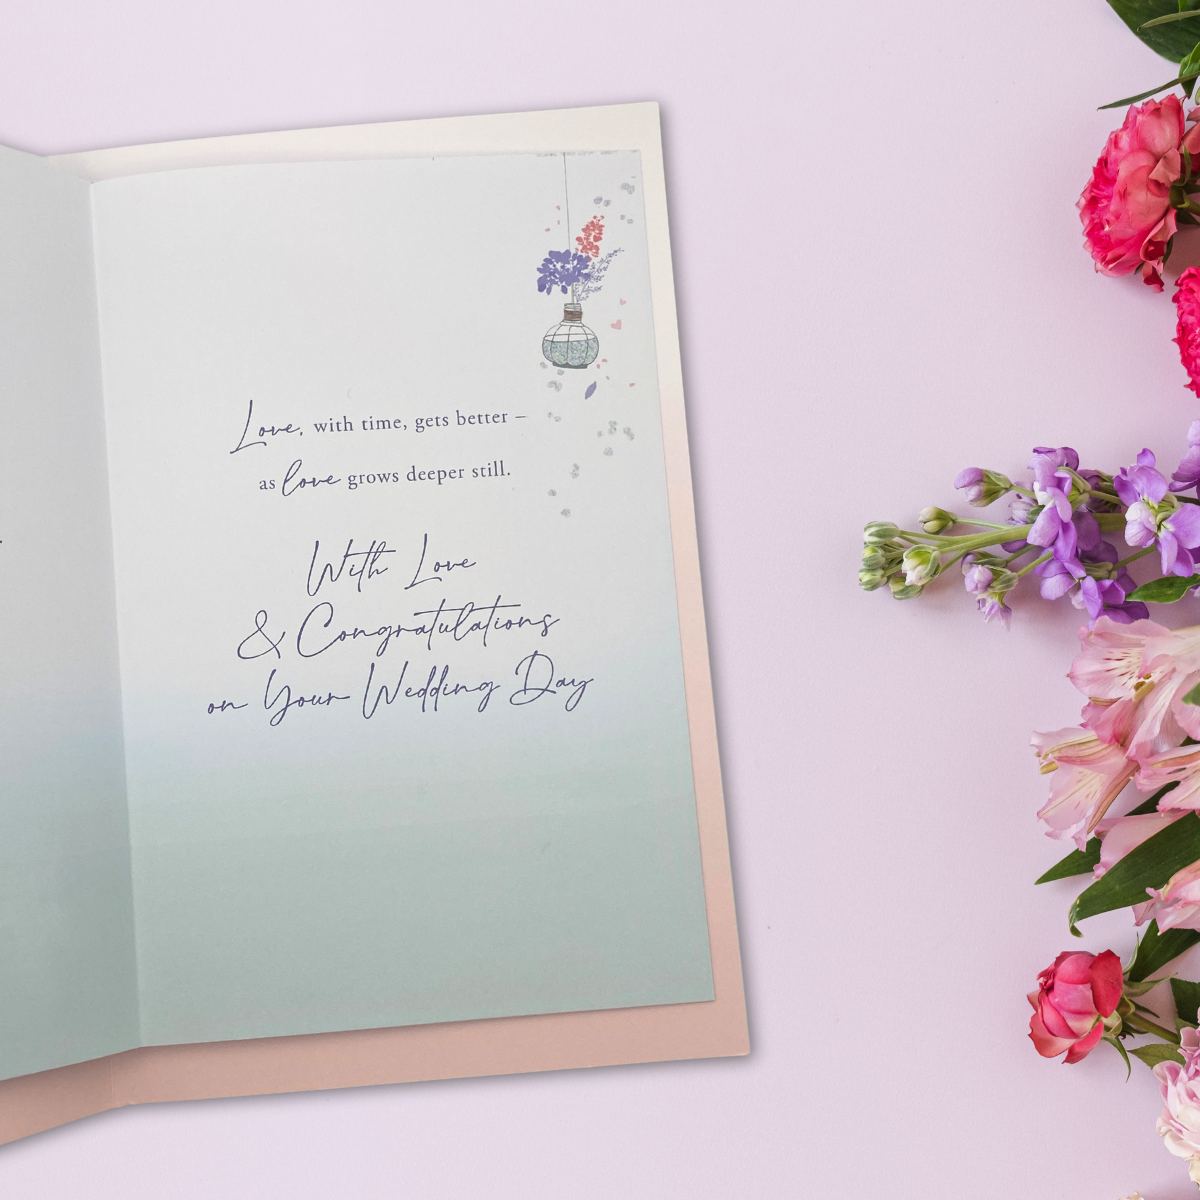 Love, with time, gets better –
as love grows deeper still.
With Love
& Congratulations
on Your Wedding Day